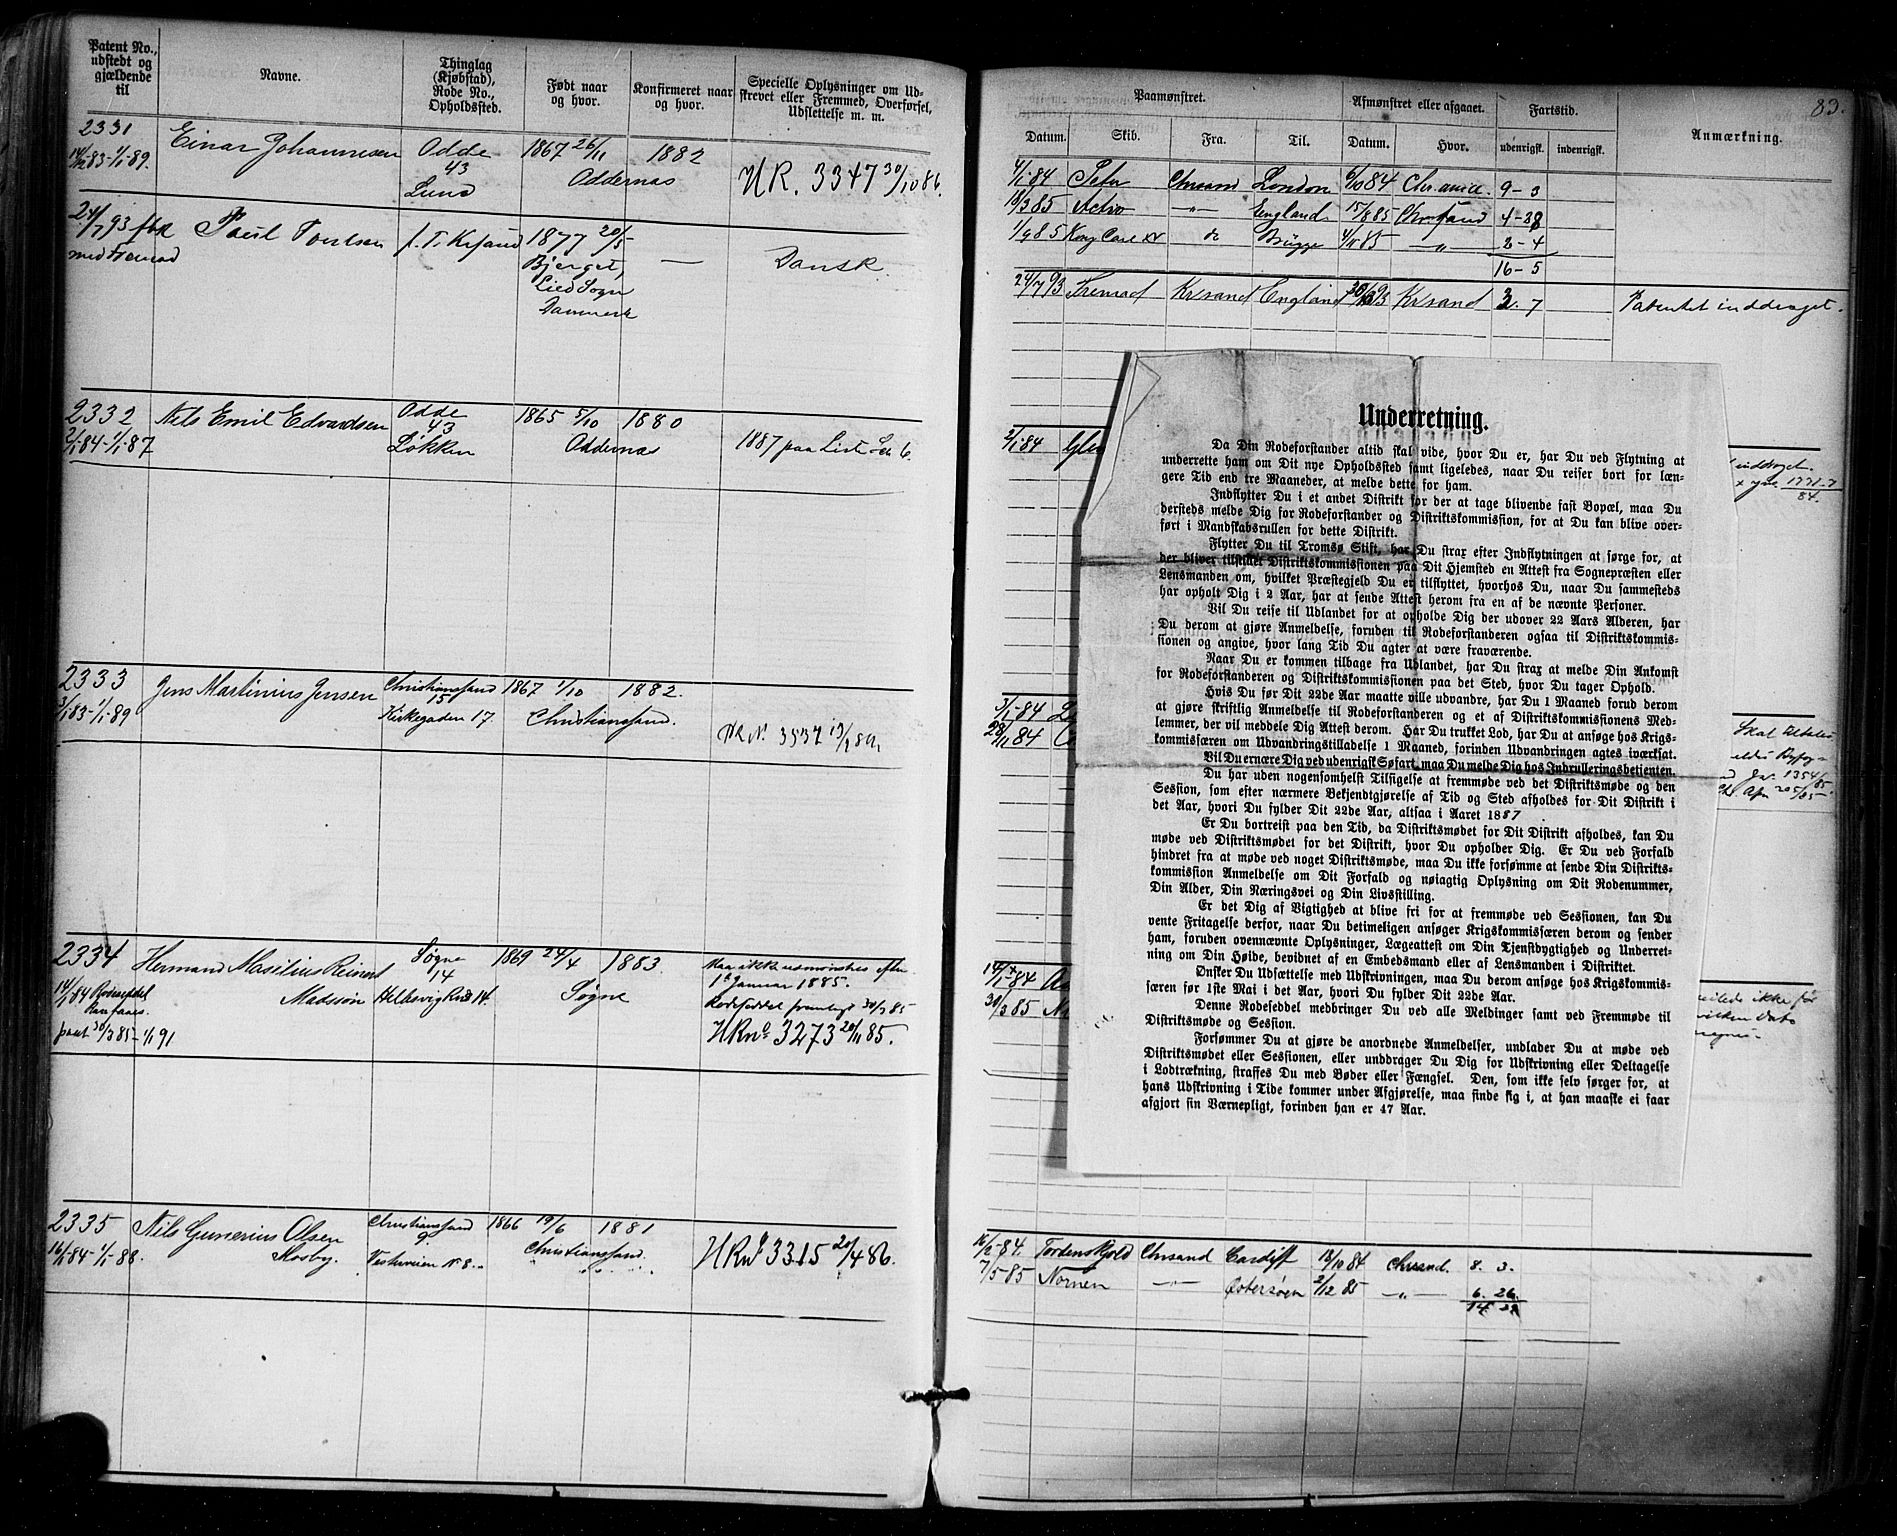 Patent No.,
udstedt og
gjældende
til
Navne.
Thinglag
(Kjøbstad),
Rode No.,
Opholdssted.
Født naar
og hvor.
Konfirmeret naar
og hvor.
Specielle Oplysninger om Ud-
skrevet eller Fremmed, Overførsel,
Udslettelse m. m.
2331
Einar Johannesen
Odde
43
Lund
1867 26/11
1882
Oddernæs
HR. 3347 30/10 86.
24/7 93 fbk
med Fremad
Poul Poulsen
f. T. Krsand
1877 20/5
Bjerget,
Lied Sogn
Danmark
—
Dansk.
2332
2/1 84-1/1 87
Nils Emil Edvardsen
Odde
43
Løkken
1865 5/10
1880
Oddernæs
1887 paa Liste Lit 6.
2333
3/1 83-1/1 89
Jens Martinius Jensen
Christianssand
15
Kirkegaden 17.
1867 1/10
1882.
Christianssand.
HR No. 3537
2334
14/1 84 Rodeseddel
pat 30/3 85-1/1 91
Hermand Masilius Reinert
Madssøn
Søgne
14
1869 24/4
1883.
Søgne
Maa ikke udmønstres efter
1ste Januar 1885.
Rodeseddel fremlagt 30/3 85
HR No 3273 20/11 85.
2335
16/1 84-1/1 88.
Nils Gunerius Olsen
Mosby.
Christianssand
9.
Vesterveien No 8.
1866 19/6
1881
Christianssand.
HR No 3315 20/4 86.
83.
Paamønstret.
Afmønstret eller afgaaet.
Fartstid.
Anmærkning.
Datum.
Skib.
Fra.
Til.
Datum.
Hvor.
udenrigsk.
indenrigsk.
4/1 84
Chrsand
London
6/10 84
9-3
18/3 85 Activ
—"—
England
15/8 85
Chrssand
4-28
1/9 85 Kong Carl XV
do
Brügge
4/11 85
—"—
2-4
16-5
24/7 93 Fremad
Krsand
England
30/10 93
Krsand
3. 7
Patentet inddraget.
2/1 84
inddraget.
84.
3/1 84
28/11 84
Skal
14/1 84
30/3 85
ikke før
Underretning.
Da Din Rodeforstander altid skal vide, hvor Du er, har Du ved Flytning at
underrette ham om Dit nye Opholdssted samt ligeledes, naar Du reiser bort for læn-
gere Tid end tre Maaneder, at melde dette for ham.
Indflytter Du i et andet Distrikt for der at tage blivende fast Bopæl, maa Du
dersteds melde Dig for Rodeforstander og Distriktskommission, for at Du kan blive over-
ført i Mandskabsrullen for dette Distrikt.
Flytter Du til Tromsø Stift, har Du strax efter Indflytningen at sørge for, at
der bliver tilstillet Distriktskommissionen paa Dit Hjemsted en Attest fra Sognepræsten eller
Lensmanden om, hvilket Præstegjeld Du er tilflyttet, hvorhos Du, naar Du sammesteds
har opholdt Dig i 2 Aar, har at sende Attest herom fra en af de nævnte Personer.
Vil Du reise til Udlandet for at opholde Dig der udover 22 Aars Alderen, har
Du derom at gjøre Anmeldelse, foruden til Rodeforstanderen ogsaa til Distriktskommis-
sionen og angive, hvor lang Tid Du agter at være fraværende.
Naar Du er kommen tilbage fra Udlandet, har Du strax at melde Din Ankomst
for Rodeforstanderen og Distriktskommissionen paa det Sted, hvor Du tager Ophold.
Hvis Du før Dit 22de Aar maatte ville udvandre, har Du 1 Maaned forud derom
at gjøre skriftlig Anmeldelse til Rodeforstanderen og et af Distriktskommissionens Med-
lemmer, der vil meddele Dig Attest derom. Har Du trukket Lod, har Du at ansøge hos Krigs-
kommissæren om Udvandringstilladelse 1 Maaned, forinden Udvandringen agtes iværksat.
Vil Du ernære Dig ved udenrigsk Søfart, maa Du melde Dig hos Indrulleringsbetjenten.
Du har uden nogensomhelst Tilsigelse at fremmøde ved det Distriktsmøde og den
Session, som efter nærmere Bekjendtgjørelse af Tid og Sted afholdes for Dit Distrikt i
det Aar, hvori Du fylder Dit 22de Aar, altsaa i Aaret 1887
Er Du bortreist paa den Tid, da Distriktsmødet for Dit Distrikt afholdes, kan Du
møde ved Distriktsmødet for det Distrikt, hvor Du opholder Dig. Er Du ved Forfald
hindret fra at møde ved noget Distriktsmøde, maa Du ikke forsømme at sende Din Distrikts-
kommission Anmeldelse om Dit Forfald og nøiagtig Oplysning om Dit Rodenummer,
Din Alder, Din Næringsvei og Din Livsstilling.
Er det Dig af Vigtighed at blive fri for at fremmøde ved Sessionen, kan Du
vente Fritagelse derfor, naar Du betimeligen ansøger Krigskommissæren derom og sender
ham, foruden ovennævnte Oplysninger, Lægeattest om Din Tjenstbygtighed og Underret-
ning om Din Høide, bevidnet af en Embedsmand eller af Lensmanden i Distriktet.
Ønsker Du Udsættelse med Udskrivningen, maa Du derom ansøge hos Krigskommis-
særen før 1ste Mai i det Aar, hvori Du fylder Dit 22de Aar.
Denne Rodeseddel medbringer Du ved alle Meldinger samt ved Fremmøde til
Distriktsmøde og Session.
Forsømmer Du at gjøre de anordnede Anmeldelser, undlader Du at møde ved
Distriktsmødet eller Sessionen, eller unddrager Du Dig for Udskrivning eller Deltagelse
i Lodtrækning, straffes Du med Bøder eller Fængsel. Den, som ikke selv sørger for, at
hans Udskrivning i Tide kommer under Afgjørelse, maa finde sig i, at han maaske ei faar
afgjort sin Værnepligt, forinden han er 47 Aar.
16/2 84. Tordenskjold
Chrsand
Cardiff
13/10 84
Chrsand.
8. 3.
7/5 85 Nornen
—"—
Østersøen
2/12 85
—"—
6. 26.
14 29